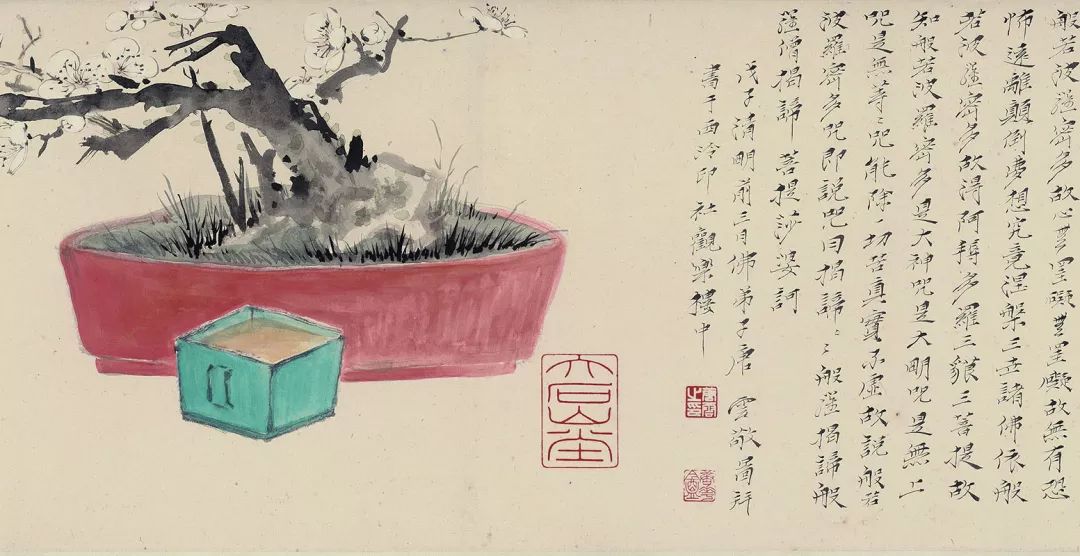 般若波蘿密多故心無罣礙無罣礙故無有恐
怖遠離顛倒夢想究竟涅槃三世諸佛依般
若波蘿密多故得阿耨多羅三藐三菩提故
知般若波羅密多是大神咒是大明咒是無上
咒是無等々咒能除一切苦真實不虛故說般若
波羅密多咒即說咒曰揭諦々々般蘿揭諦般
蘿僧揭諦 菩提莎婆訶
戊子清明前三日佛弟子唐雲敬啚拜
書于西泠印社觀樂樓中